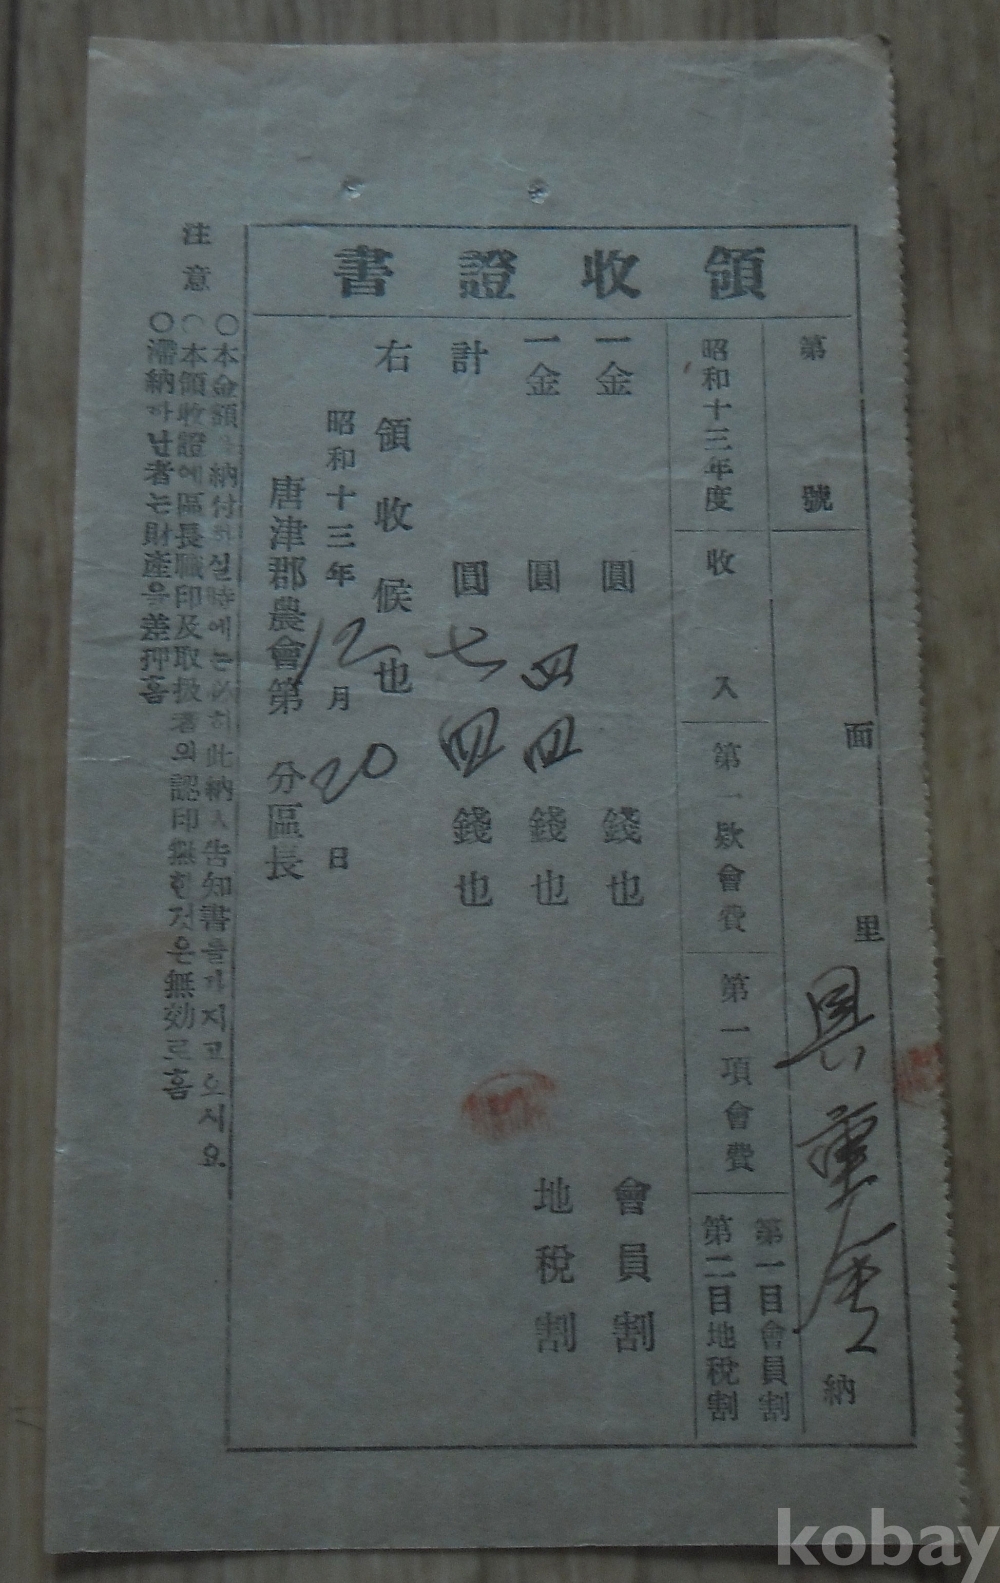 領收證書
第 號
面 里 具重會 納
昭和十三年度
收入
第一款會費
第一項會費
第一目會員割
第二目地稅割
一金 圓 錢也 會員割
一金 圓四四錢也 地稅割
計 圓七四錢也
右領收候也
昭和十三年12月20日
唐津郡農會第 分區長
注意
○本金額을納付하실時에는必히此納入告知書를가지고오시요.
○本領收證에區長職印及取扱者의認印無한것은無効로홈
○滯納하난者는財產을差押홈
kobay